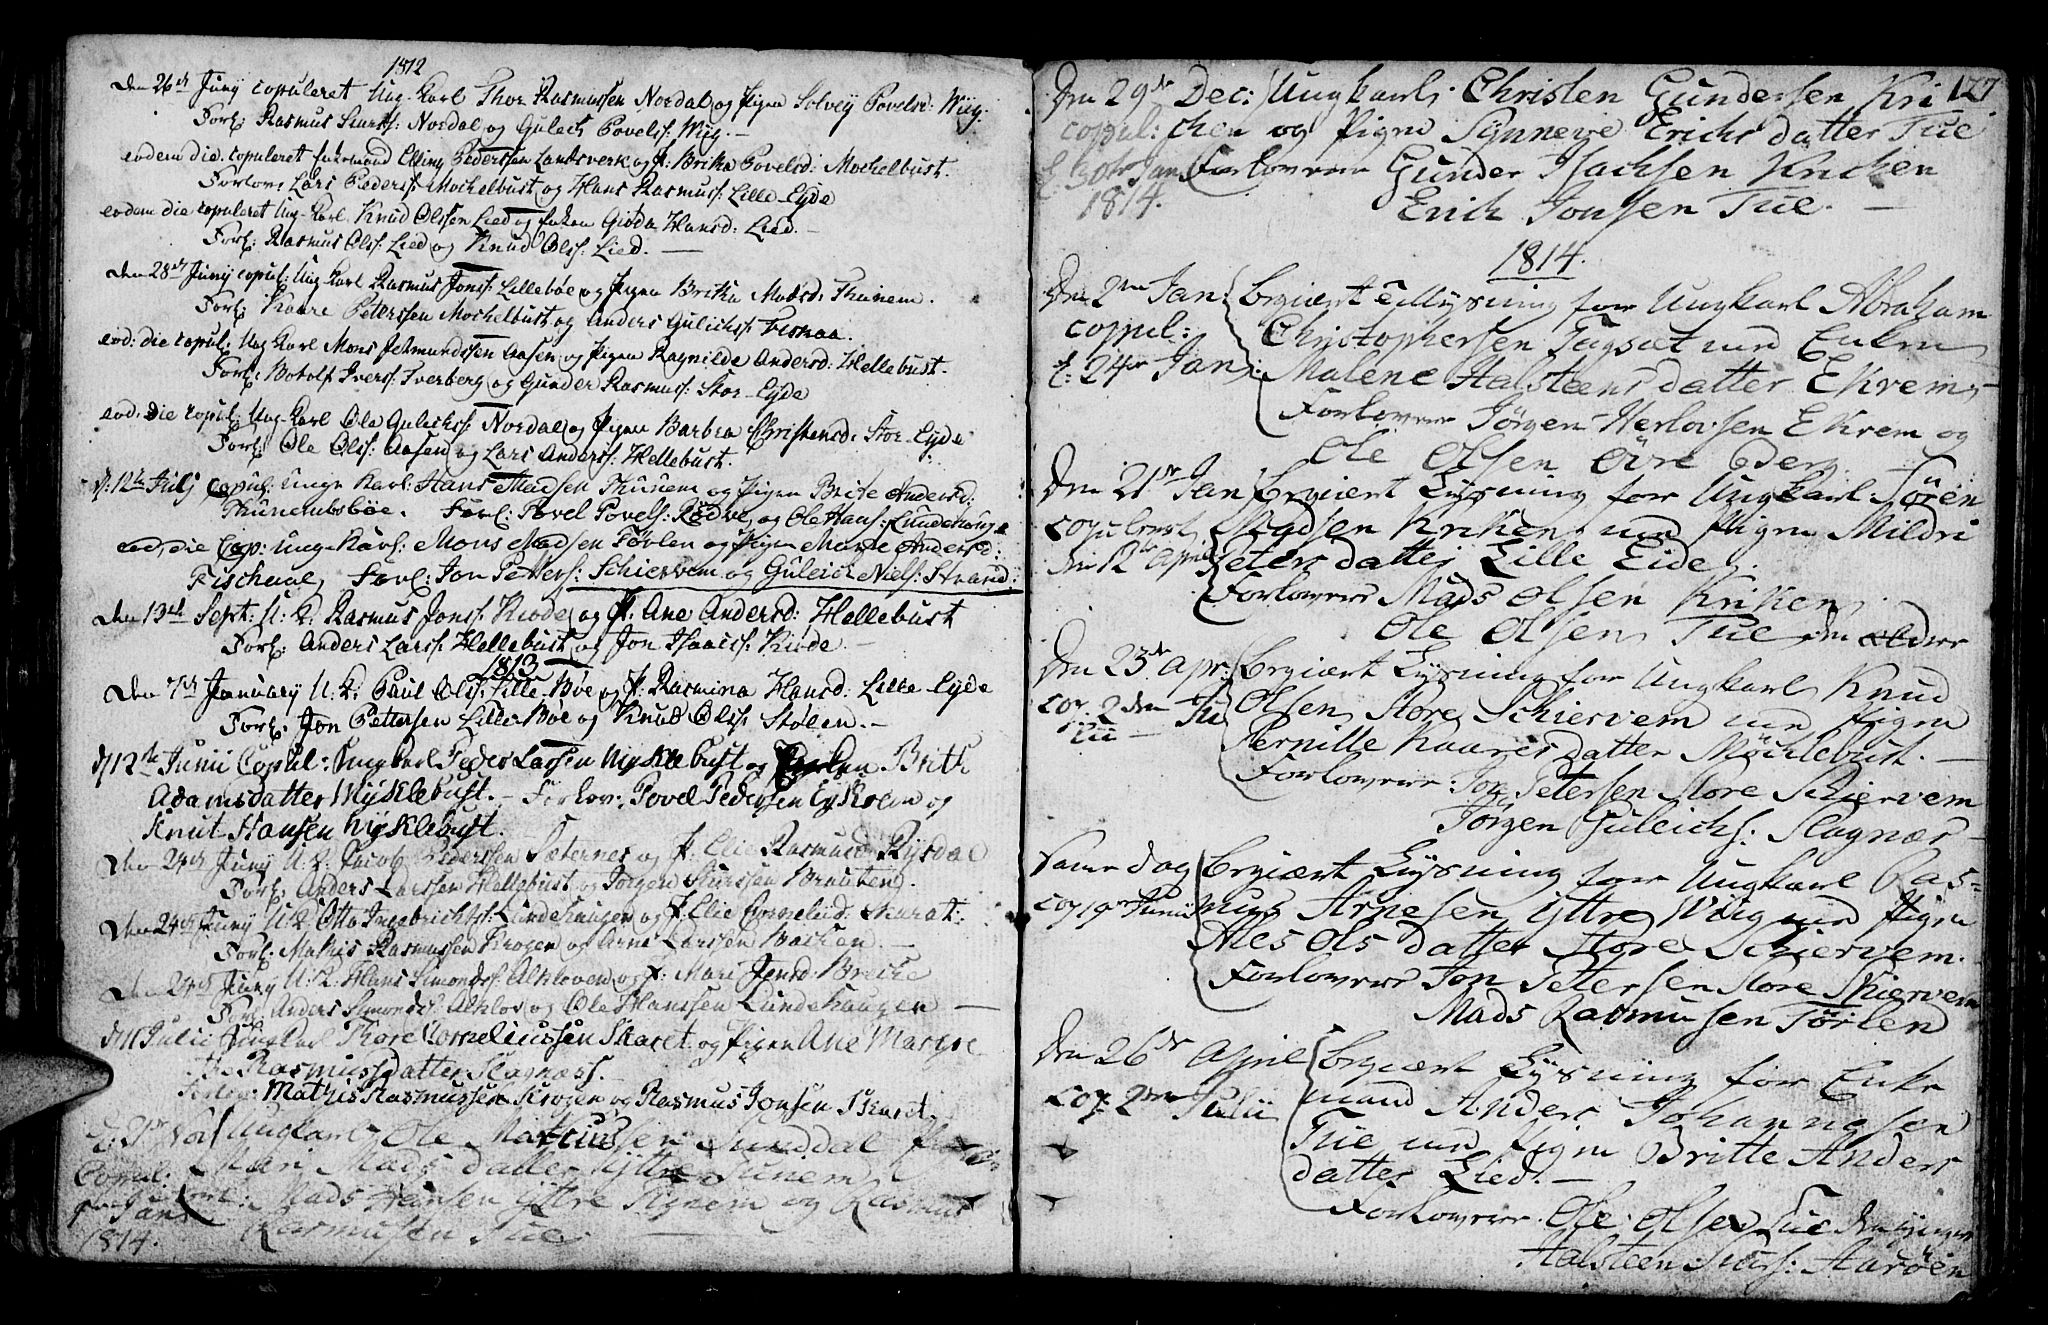 1812
Den 26de Juny copuleret Ung-Karl Thor Rasmussen Nordal og Pigen Solvey Povelsd: Myg.
Forl: Rasmus Siurss: Nordal og Gulech Povels: Myg. —
eodem die copuleret Enkemand Elling Pederssen Landsverk og P. Brita Povelsd: Mochelbust.
Forlov: Lars Peders: Mochelbust og Hans Rasmus: Lille-Eyde
eodem die copuleret Ung-Karl Knud Olssen Lied og Enken Giøda Hansd: Lied. —
Forl: Rasmus Olss: Lied og Knud Olss: Lied. —
Den 28de Juny copul: Ung Karl Rasmus Jonss: Lillebøe og Pigen Brita Madsd: Thunem.
Forl: Kaare Peterssen Mochelbust og Anders Gulichss: Fiskaa.
eod: die copul: Ung Karl Mons Jetmundssen Aasen og Pigen Ragnilde Andersd: Hellebust.
Forl: Botolf Ivers: Tverberg og Gunder Rasmus: Stor-Eyde
eod. die copul: Ung-Karl Ole Gulichs: Nordal og Pigen Barbra Christensd: Stor-Eyde
Forl: Ole Olss: Aasen og Lars Anderss: Hellebust.
d: 12te Julj Copul: Unge Karl: Hans Madsen Thunem og Pigen Brite Andersd:
Thunembsbøe. Forl: Povel Povels: Rødve og Ole Hans: Lundehouge
eod, die Cop: Unge Karl: Mons Madsen Tørlen og Pigen Marte Andersd:
Fischaae, Forl: Jon Petters: Schiervem og Guleich Niels: Strand:
Den 13de Sept: U. K. Rasmus Jonss: Kiøde og P. Ane Andersd: Hellebust
Forl: Anders Larss: Hellebust og Jon Isaacss: Kiøde. —
1813
Den 7de January U. K. Paul Olss: Lille-Bøe og P. Rasmina Hansd: Lille Eyde
Forl: Jon Pettersen Lille Bøe og Knud Olss: Støleen. —
d. 12te Junii Copul: Ungkarl Peder Larsen Myklebust og Enken Brith
Adamsdatter Myklebust. — Forlov: Povel Pedersen Eykrem og
Knut Hansen Myklebust.
Den 24de Juny U. K. Jacob Pederssen Sæternes og P. Elie Rasmusd Rysdal
Forl: Anders Larssen Hellebust og Jørgen Siurssen Brauten.
Den 24de Juny U. K. Otto Ingebrichtss: Lundehaugen og P. Elie Corneliud: Skaret:
Forl: Mathis Rasmussen Krogen og Arne Larssen Backen. —
Den 24de Juny U. K. Hans Simonds: Alkloven og P. Mari Jensd: Brecke
Forl: Anders Simonds: Alklov og Ole Hanssen Lundehaugen —
d. 11 Julii Ungkarl Thore Corneliussen Skaret og Pigen Ane Margre
the Rasmussdatter Slagnæss. —
Forlov: Mathis Rasmussen Krogen og Rasmus Jonsen Skaret.
d. 21de Nov Ungkarl Ole Matthiusen Sunddal
Copul: Mari Mads datter Yttre Tunem
Jan Forl: Mads Hansen Yttre Tunem og Rasmus
1814. Rasmussen Tue. —
127
Den 29de Dec: Ungkarl Christen Gundersen Kri
coppul: chen og Pigen Synneve Erichs datter Tue
d: 30te Jan Forlovere Gunder Isachsen Krichen
1814. Erich Jonsen Tue. —
1814.
Den 2den Jan: Begiært Tillysning for Ungkarl Abraham
coppul: Christophersen Tagsæt med Enken
d: 24de Jan: Malene Halsteens datter Ekrem
Forlovere Jørgen Herlovsen Ekrem og
Ole Olsen Øvre Berg. —
Den 21de Jan Begiært Lysning for Ungkarl Søren
copuleret Madsen Kriken med Pigen Mildri
den 12te April Peters datter Lille Eide.
Forlovere Mads Olsen Kriken
Ole Olsen Tue den Ældere
Den 23de Apr: Begiært Lysning for Ungkarl Knud
cop. 2den Ju Olsen Store Schiervem med Pigen
lii — Pernille Kaares datter Mochlebust. —
Forlovere: Jon Petersen Store Schiervem
Jørgen Guleichs: Slagnær —
Samme dag Begiært Lysning for Ungkarl Ras=
cop 19de Junii mus Arnesen Yttre Møig med Pigen
Ales Ols datter Store Schiervem.
Forlovere Jon Petersen Store Skiervem
Mads Rasmussen Tørlen
Den 26de April Begiært Lysning for Enke
cop. 2den Julii mand Anders Johannesen
Tue med Pigen Britte Anders
datter Lied. —
Forlovere Ole Olsen Tue den yngre
Halsteen Siurs: Aarøen